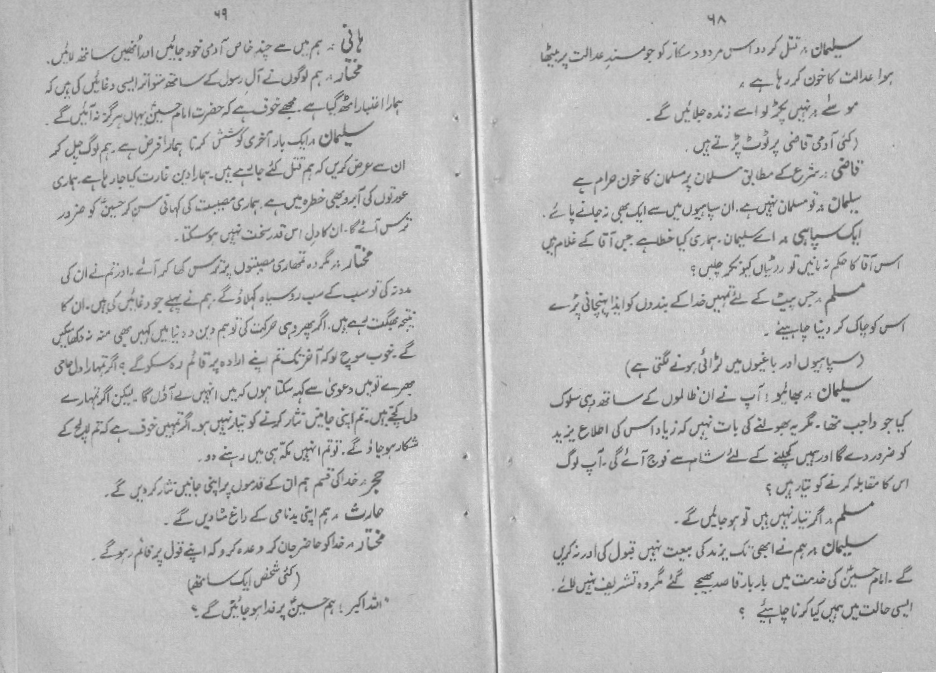 ۶۸
سلیمان :۔ قتل کر دو اس مردود مکار کو جو مسندِ عدالت پر بیٹھا
ہوا عدالت کا خون کر رہا ہے ۔
موسٰے :۔ نہیں پکڑ لو اسے زندہ جلائیں گے ۔
(کئی آدمی قاضی پر ٹوٹ پڑتے ہیں)
قاضی :۔ شرع کے مطابق مسلمان پر مسلمان کا خون حرام ہے
سلیمان :۔ تو مسلمان نہیں ہے ۔ ان سپاہیوں میں سے ایک بھی نہ جانے پائے ۔
ایک سپاہی :۔ اے سلیمان ۔ ہماری کیا خطا ہے جس آقا کے غلام ہیں
اس آقا کا حکم نہ مانیں تو روٹیاں کیونکر چلیں ؟
مسلم :۔ جس پیٹ کے لئے تمہیں خدا کے بندوں کو ایذا پہنچانی پڑے
اس کو چاک کر دینا چاہیئے ۔
(سپاہیوں اور باغیوں میں لڑائی ہونے لگتی ہے)
سلیمان :۔ بھائیو ! آپ نے ان ظالموں کے ساتھ وہی سلوک
کیا جو واجب تھا ۔ مگر یہ بھولنے کی بات نہیں کہ زیاد اس کی اطلاع یزید
کو ضرور دے گا اور ہمیں کچلنے کے لئے شام سے فوج آئے گی ۔ آپ لوگ
اس کا مقابلہ کرنے کو تیار ہیں ؟
مسلم :۔ اگر تیار نہیں ہیں تو ہو جائیں گے ۔
سلیمان :۔ ہم نے ابھی تک یزید کی بیعت نہیں قبول کی اور نہ کریں
گے ۔ امام حسینؑ کی خدمت میں بار بار قاصد بھیجے گئے مگر وہ تشریف نہیں لائے ۔
ایسی حالت میں ہمیں کیا کرنا چاہیئے ؟
۶۹
ہانی :۔ ہم میں سے چند خاص آدمی خود جائیں اور اُنھیں ساتھ لائیں ۔
مختار :۔ ہم لوگوں نے آلِ رسول کے ساتھ متواتر ایسی دغائیں کی ہیں کہ
ہمارا اعتبار اٹھ گیا ہے ۔ مجھے خوف ہے کہ حضرت امام حسینؑ یہاں ہرگز نہ آئیں گے ۔
سلیمان :۔ ایک بار آخری کوشش کرنا ہمارا فرض ہے ۔ ہم لوگ چل کر
ان سے عرض کریں کہ ہم قتل کئے جا رہے ہیں ۔ ہمارا دین غارت کیا جا رہا ہے ۔ ہماری
عورتوں کی آبرو بھی خطرہ میں ہے ۔ ہماری مصیبت کی کہانی سن کر حسینؑ کو ضرور
ترس آئے گا ۔ ان کا دل اس قدر سخت نہیں ہو سکتا ۔
مختار :۔ مگر وہ تمھاری مصیبتوں پر ترس کھا کر آئے ۔ اور تم نے ان کی
مدد نہ کی تو سب کے سب روسیاہ کہلاؤ گے ۔ ہم نے پہلے جو دغائیں کی ہیں ۔ ان کا
نتیجہ بھگت رہے ہیں ۔ اگر پھر وہی حرکت کی تو ہم دین و دنیا میں کہیں بھی منہ نہ دکھا سکیں
گے ۔ خوب سوچ لو کہ آخر تک تم اپنے ارادہ پر قائم رہ سکو گے ؟ اگر تمہارا دل حامی
بھرے تو میں دعویٰ سے کہہ سکتا ہوں کہ میں انہیں لے آؤں گا ۔ لیکن اگر تمہارے
دل کچے ہیں ۔ تم اپنی جانیں نثار کرنے کو تیار نہیں ہو ۔ اگر تمہیں خوف ہے کہ تم لالچ کے
شکار ہو جاؤ گے ۔ تو تم انہیں مکہ ہی میں رہنے دو ۔
حجر :۔ خدا کی قسم ہم ان کے قدموں پر اپنی جانیں نثار کر دیں گے ۔
حارث :۔ ہم اپنی بدنامی کے داغ مٹا دیں گے ۔
مختار :۔ خدا کو حاضر جان کر وعدہ کرو کہ اپنے قول پر قائم رہو گے ۔
(کئی شخص ایک ساتھ)
اللہ اکبر ! ہم حسینؑ پر فدا ہو جائیں گے ؟